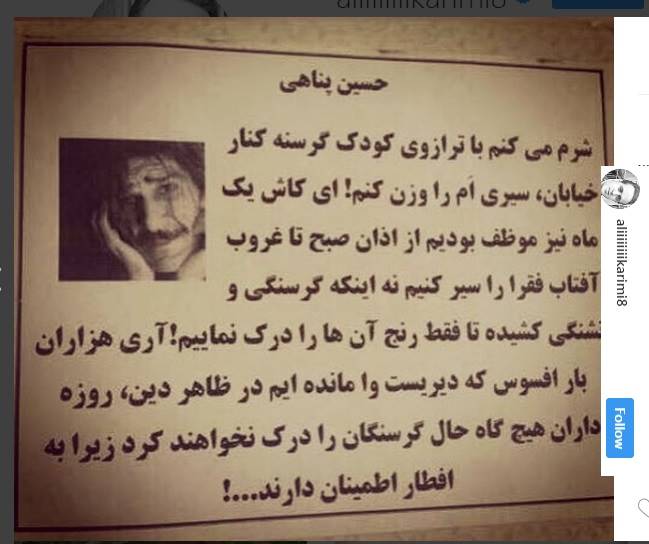 aliiiiiiiiikarimi8
حسین پناهی
شرم می کنم با ترازوی کودک گرسنه کنار
خیابان، سیری اَم را وزن کنم! ای کاش یک
ماه نیز موظف بودیم از اذان صبح تا غروب
آفتاب فقرا را سیر کنیم نه اینکه گرسنگی و
تشنگی کشیده تا فقط رنج آن ها را درک نماییم!آری هزاران
بار افسوس که دیریست وا مانده ایم در ظاهر دین، روزه
داران هیچ گاه حال گرسنگان را درک نخواهند کرد زیرا به
افطار اطمینان دارند...!
aliiiiiiiiikarimi8
Follow